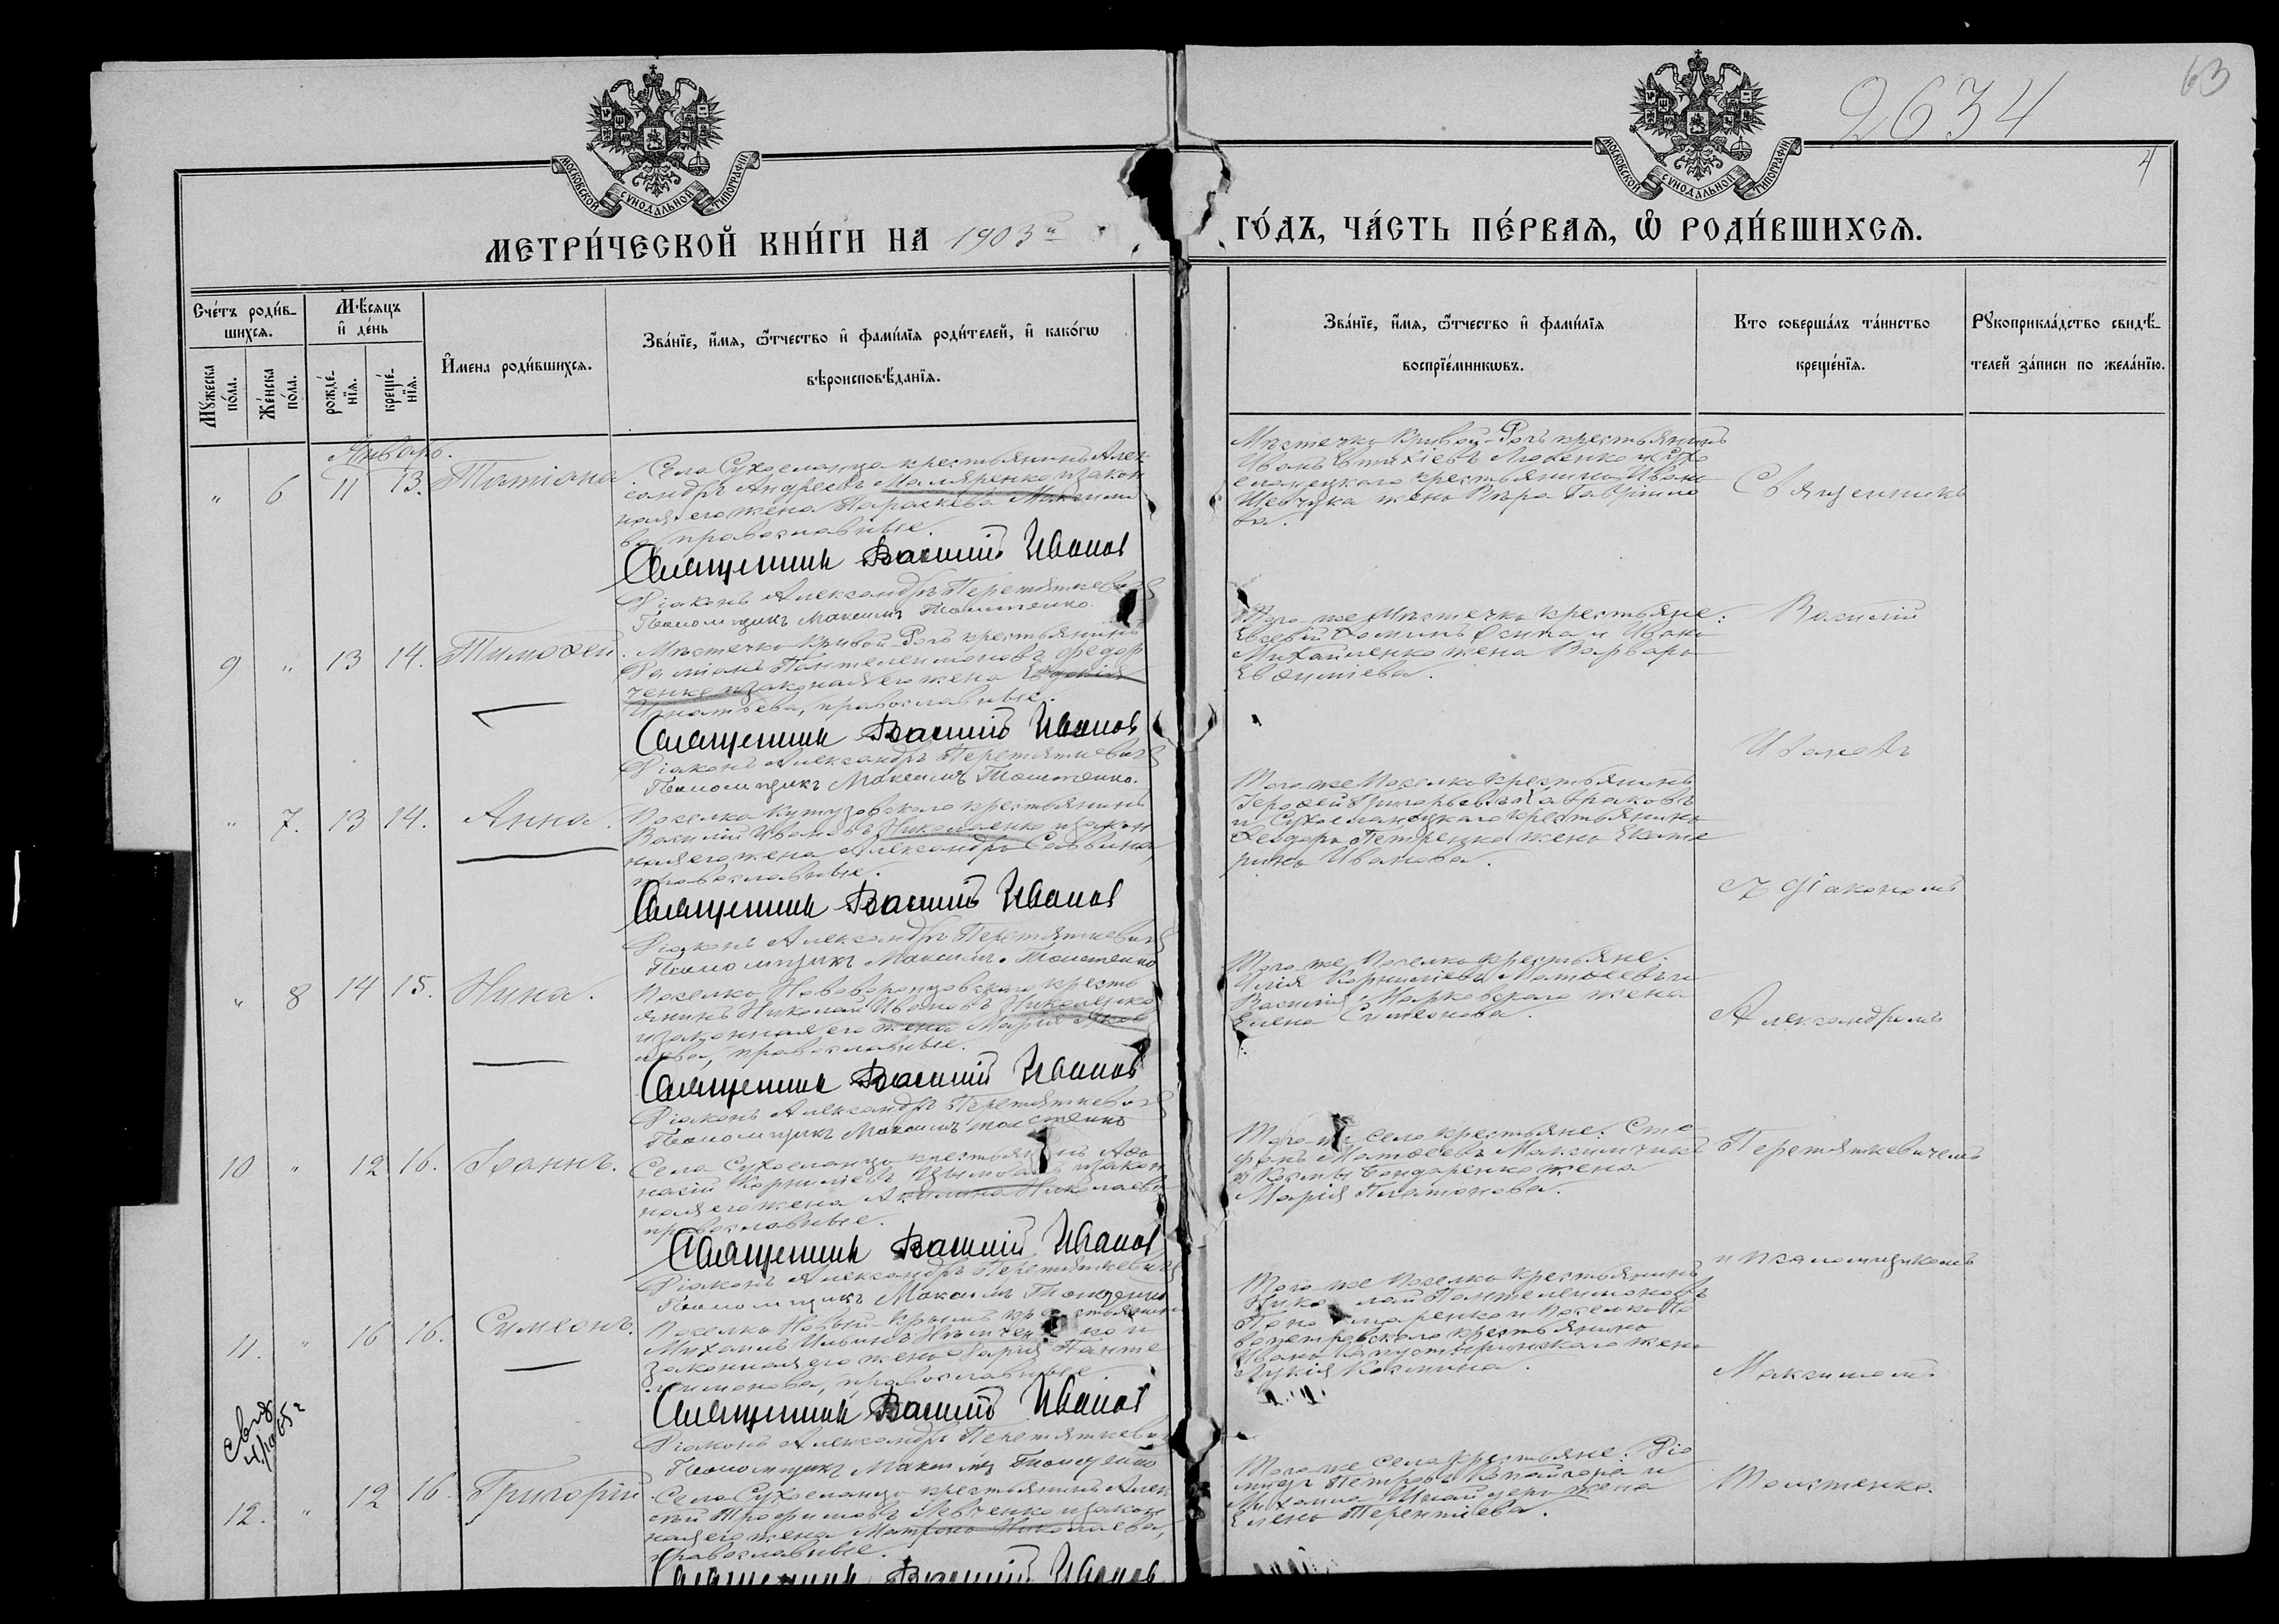 2634
63
4
МОСКОВСКОЙ СѴНОДАЛЬНОЙ ТИПОГРАФІИ
МОСКОВСКОЙ СѴНОДАЛЬНОЙ ТИПОГРАФІИ
МЕТРИ́ЧЕСКОЙ КНИ́ГИ НА 1903й ГО́ДЪ, ЧА́СТЬ ПЕ́РВАѦ, Ѡ РОДИ́ВШИХСѦ.
Сче́тъ роди́в-
шихсѧ.
Мꙋ́жеска по́ла.
Же́нска по́ла.
Мѣ́сѧцъ
и҆ де́нь
рожде́-
нїѧ.
креще́-
нїѧ.
И҆мена роди́вшихсѧ.
Зва́нїе, и҆́мѧ, ѻ҆́тчество и҆ фами́лїѧ роди́телей, и҆ како́гѡ
вѣроисповѣ́данїѧ.
Зва́нїе, и҆́мѧ, ѻ҆́тчество и҆ фами́лїѧ
воспрїе́мникѡвъ.
Кто соверша́лъ та́инство
креще́нїѧ.
Рꙋкоприкла́дство свидѣ́-
телей за́писи по жела́нїю.
Январь.
" 6 11 13. Татіана.
Села Сухоеланца крестьянинъ Алек
сандръ Андреевъ Маляренко и закон
ная его жена Параскева
ва, православные.
Священникъ Василій Иванов
Діаконъ Александръ Перетяткевичъ
Псаломщикъ Максимъ Толстенко.
Мѣстечка Кривой-Рогъ крестьянинъ
Иванъ Евтихіевъ и Сухо
еланецкаго крестьянина Ивана
Шевчука жена Вѣра Гаврііло
ва.
Священникъ
9 " 13 14. Тимоѳей.
Мѣстечка Кривой-Рогъ крестьянинъ
Пантелеимоновъ Федор
ченко и законная его жена Евдокія
Игнатьева, православные.
Священникъ Василій Иванов
Діаконъ Александръ Перетяткевичъ
Псаломщикъ Максимъ Толстенко.
Того же Мѣстечка крестьяне:
Евсевій Ѳоминъ и Ивана
Михайленка жена Варвара
Евѳиміева.
Василій
Ивановъ
" 7. 13 14. Анна.
Поселка Кутузовскаго крестьянинъ
Василій Ивановъ Николаенко и закон
ная его жена Александра Саввина,
православные.
Священникъ Василій Иванов
Діаконъ Александръ Перетяткевичъ
Псаломщикъ Максимъ Толстенко
Того же Поселка крестьянинъ
Іероѳей Григорьевъ
и Сухоеланецкаго крестьянина
Ѳеодора Петренка жена Екате
рина Иванова.
съ діакономъ
" 8 14 15. Нина.
Поселка Нововоронцовскаго кресть
янинъ Николай Ивановъ Николенко
и законная его жена Марія Яков
лева, православные.
Священникъ Василій Иванов
Діаконъ Александръ Перетяткевичъ
Псаломщикъ Максимъ Толстенко
Того же Поселка крестьяне:
Илія Корниліевъ Матѳеевъ и
Василія Марковскаго жена
Елена Симеонова.
Александромъ
10 " 12 16. Іоаннъ.
Села Сухоеланца крестьянинъ Аѳа
насій Корниліевъ и закон
ная его жена Акилина Николаева
православные.
Священникъ Василій Иванов
Діаконъ Александръ Перетяткевичъ
Псаломщикъ Максимъ Толстенко
Того же села крестьяне: Сте
фанъ Матѳеевъ
и Козмы Бондаренка жена
Марія Платонова.
Перетяткевичемъ
и псаломщикомъ
11. " 16 16. Симеонъ.
Поселка Новый-Крымъ крестьянинъ
Михаилъ Ильинъ Нѣмченко и
законная его жена Марія Панте
леимонова, православные.
Священникъ Василій Иванов
Діаконъ Александръ Перетяткевичъ
Псаломщикъ Максимъ Толстенко
Того же Поселка крестьянинъ
Николай Пантелеимоновъ
Пономаренко и Поселка По
вопетровскаго крестьянина
Ивана жена
Лукія Козмина.
Максимомъ
12. " 12 16. Григорій.
Села Сухоеланца крестьянинъ Алек
сѣй Трофимовъ Левченко и закон
ная его жена Матрона Николаева,
православные.
Священникъ Василій Иванов
Того же села крестьяне: Діо
мидъ Петровъ и
Михаила жена
Елена Терентіева.
Толстенко.